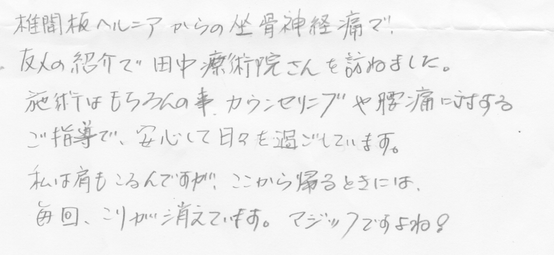 椎間板ヘルニアからの坐骨神経痛で、
友人の紹介で田中療術院さんを訪ねました。
施術はもちろんの事、カウンセリングや腰痛に対する
ご指導で、安心して日々を過ごしています。
私は肩もこるんですが、ここから帰るときには、
毎回、こりが消えています。マジックですよね?